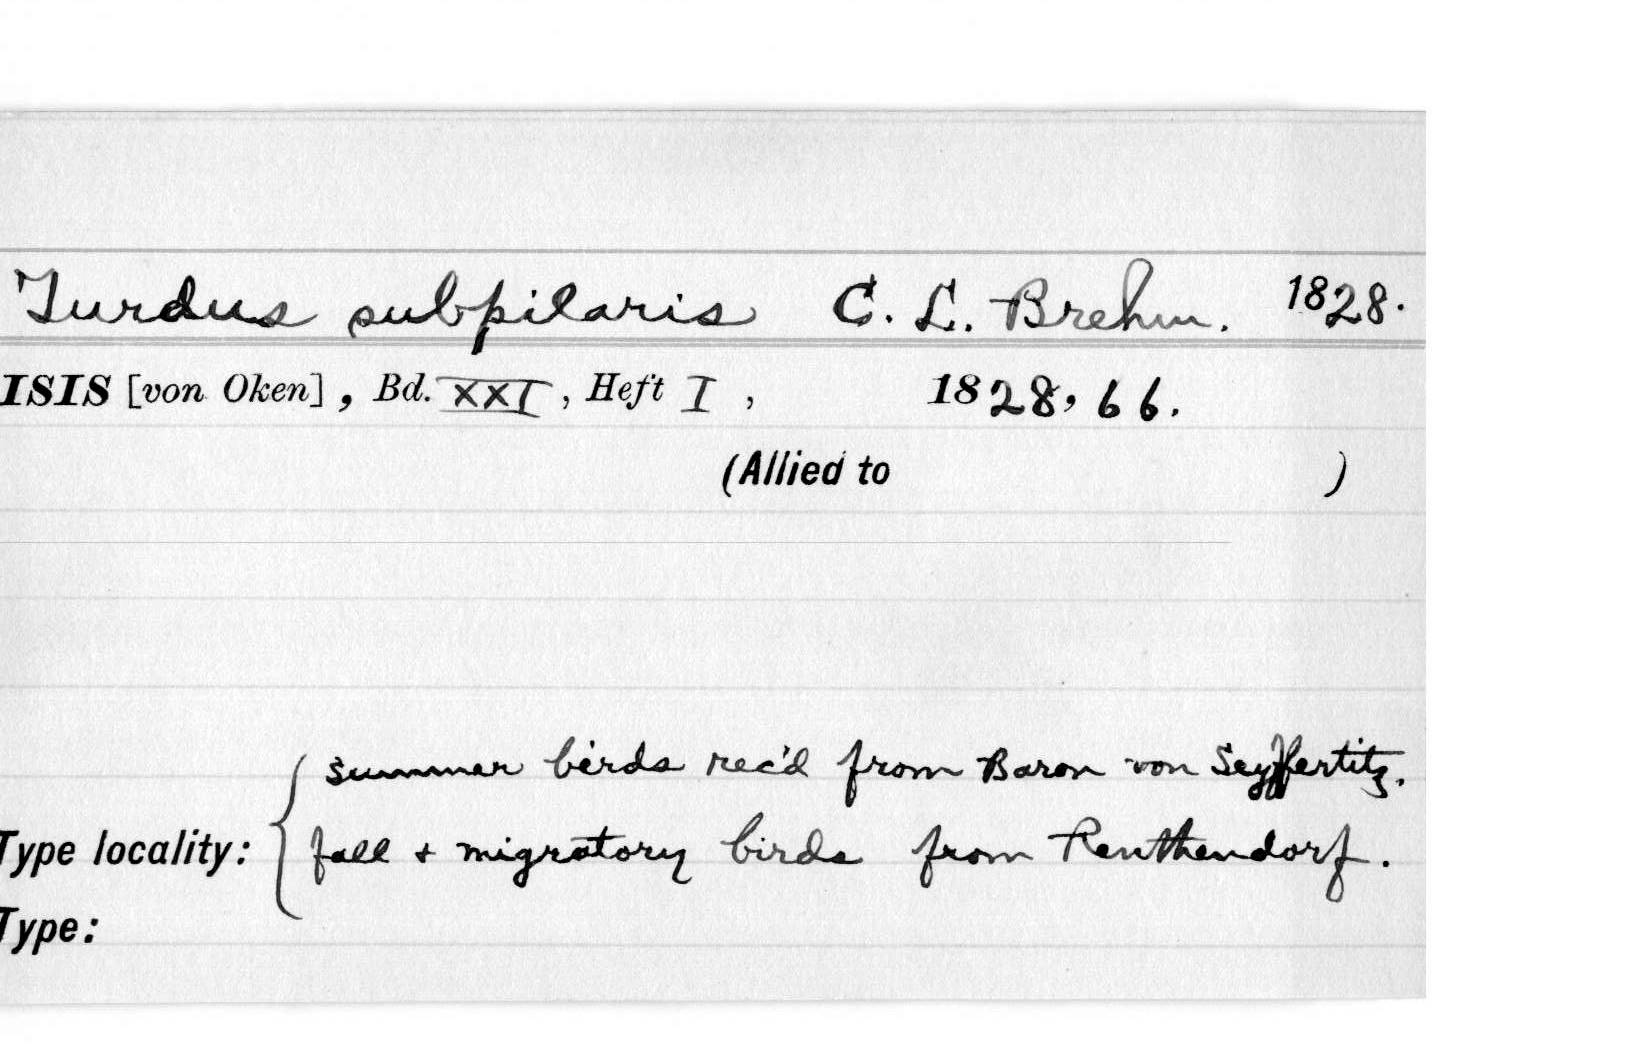 Turdus subpilaris C. L. Brehm. 1828.
ISIS [von Oken], Bd. XXI, Heft I, 1828, 66.
(Allied to )
summer birds rec'd from Baron von Seyffertitz.
Type locality: { fall + migratory birds from Renthendorf.
Type: